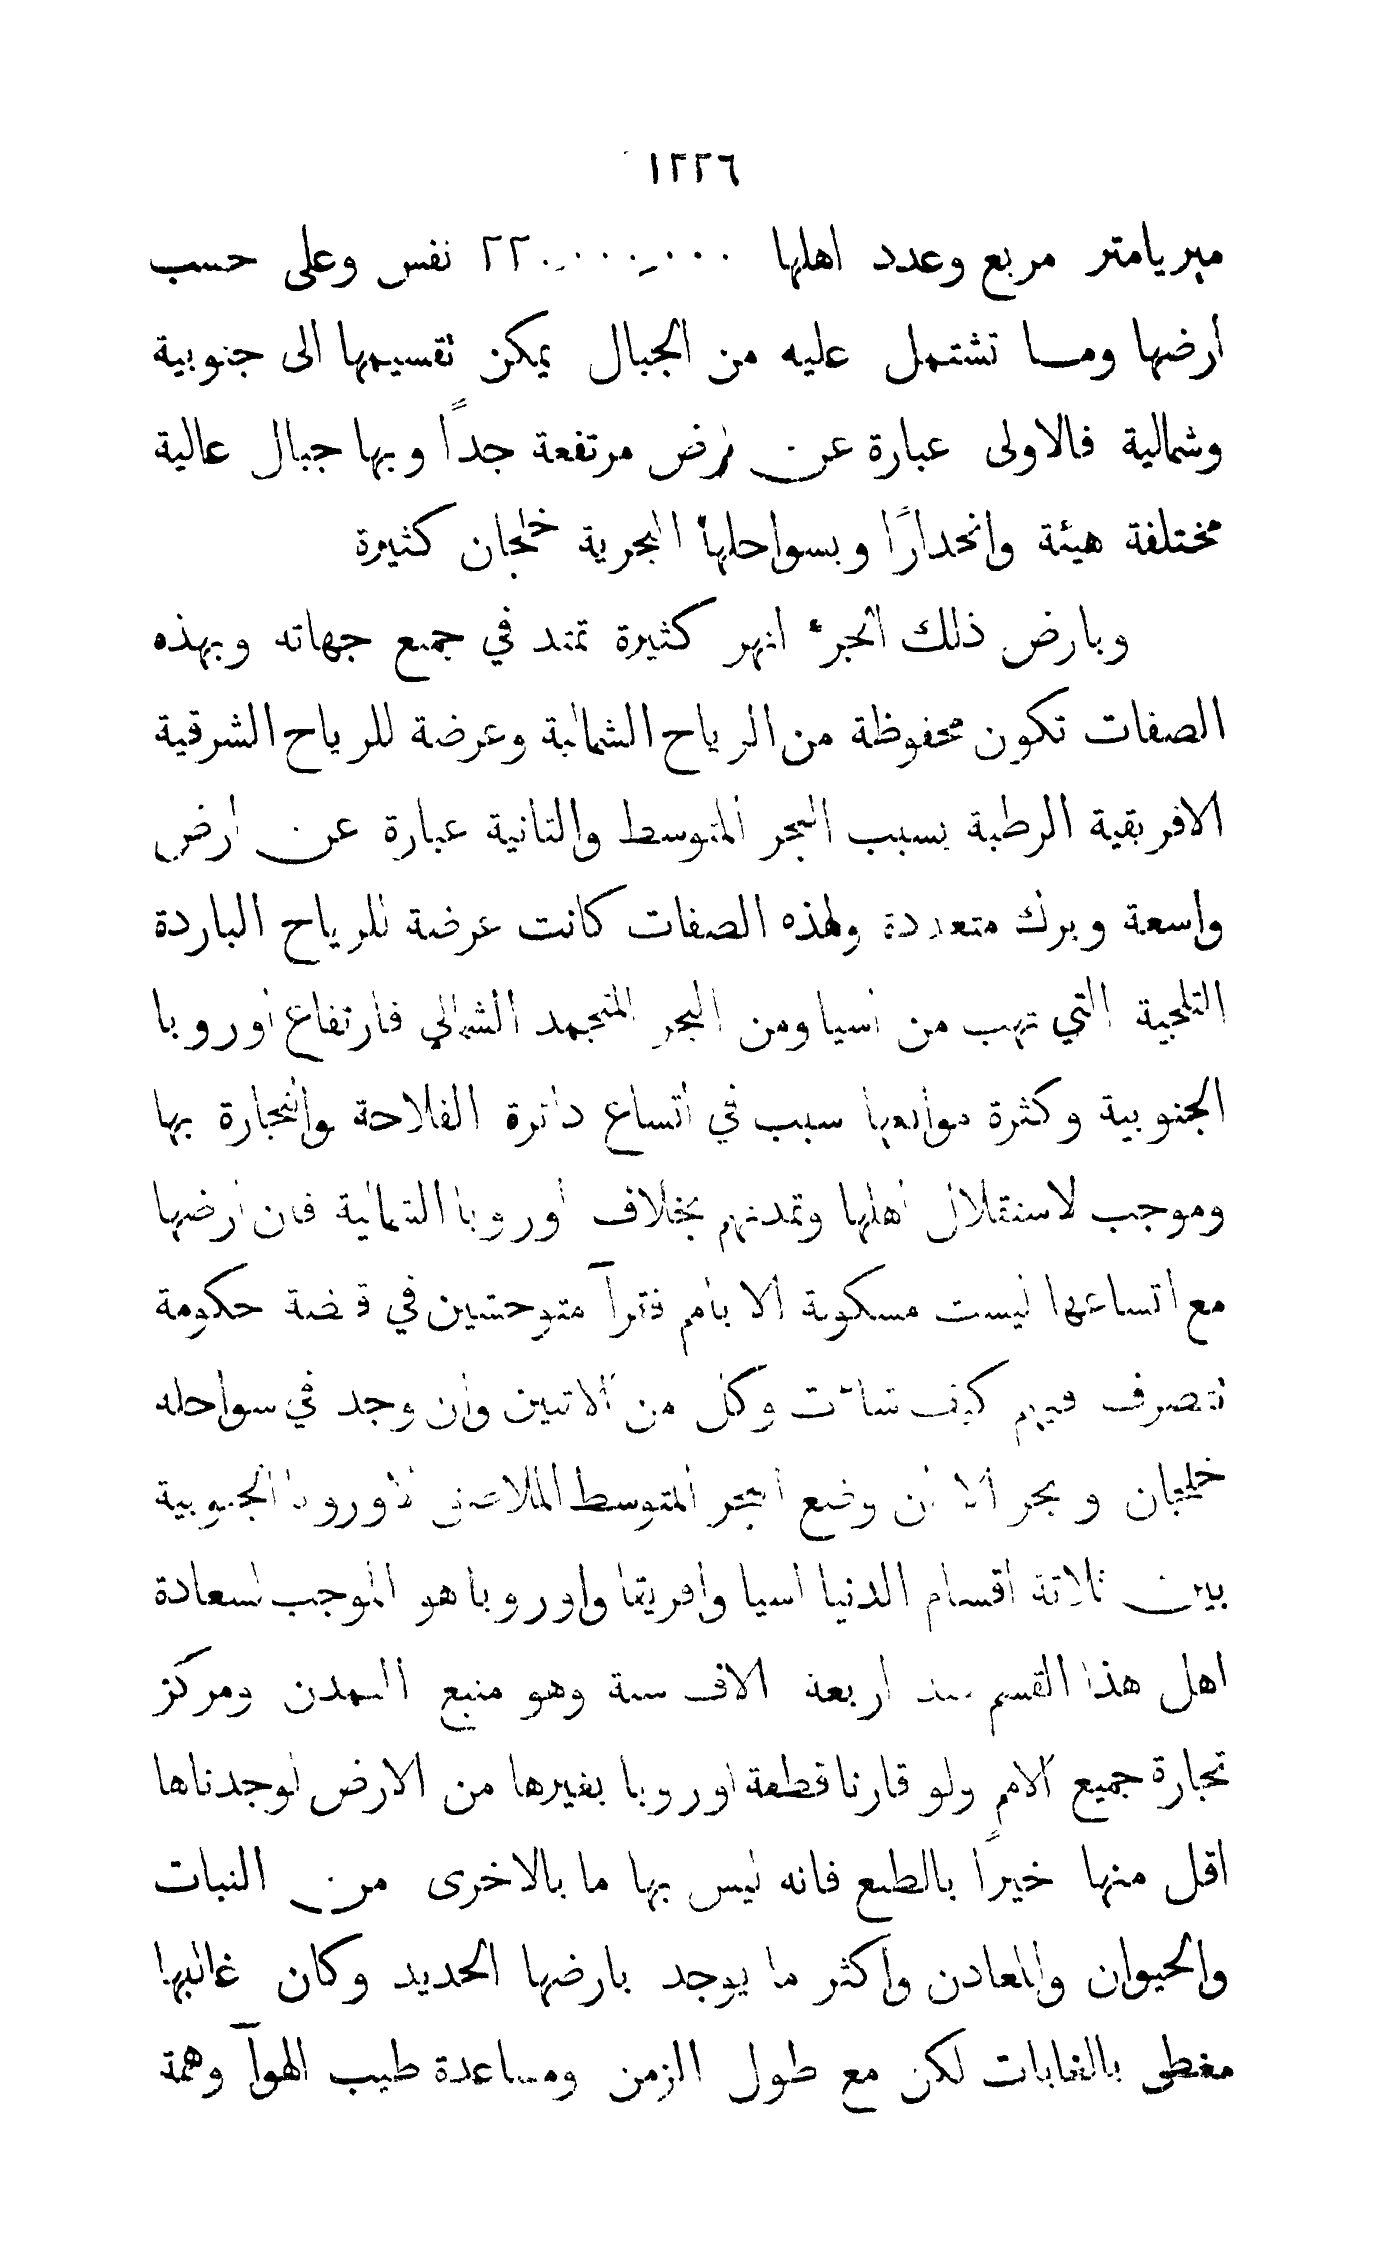 ١٢٢٦
ميريامتر مربع وعدد اهلها ٢٢٠.٠٠٠.٠٠٠ نفس وعلى حسب
ارضها وما تشتمل عليه من الجبال يمكن تقسيمها الى جنوبية
وشمالية فالاولى عبارة عن ارض مرتفعة جدًا وبها جبال عالية
مختلفة هيئة وانحدارًا وبسواحلها البحرية خلجان كثيرة
وبارض ذلك الجزء انهر كثيرة تمتد في جميع جهاته وبهذه
الصفات تكون محفوظة من الرياح الشمالية وعرضة للرياح الشرقية
الافريقية الرطبة بسبب البحر المتوسط والثانية عبارة عن ارض
واسعة وبرك متعددة ولهذه الصفات كانت عرضة للرياح الباردة
الثلجية التي تهب من اسيا ومن البحر المتجمد الشمالي فارتفاع اوروبا
الجنوبية وكثرة موانيها سبب في اتساع دائرة الفلاحة والتجارة بها
وموجب لاستقلال اهلها وتمدنهم بخلاف اوروبا الشمالية فان ارضها
مع اتساعها ليست مسكونة الا بامم فقرآ متوحشين في قبضة حكومة
تتصرف فيهم كيف شاءت وكل من الاثنين وان وجد في سواحله
خلجان وبحر الا ان وضع البحر المتوسط الملاصق لاوروبا الجنوبية
بين ثلاثة اقسام الدنيا اسيا وافريقا واوروبا هو الموجب لسعادة
اهل هذا القسم منذ اربعة الاف سنة وهو منبع التمدن ومركز
تجارة جميع الامم ولو قارنا قطعة اوروبا بغيرها من الارض لوجدناها
اقل منها خيرًا بالطبع فانه ليس بها ما بالاخرى من النبات
والحيوان والمعادن واكثر ما يوجد بارضها الحديد وكان غالبها
مغطى بالغابات لكن مع طول الزمن ومساعدة طيب الهوآ وهمة